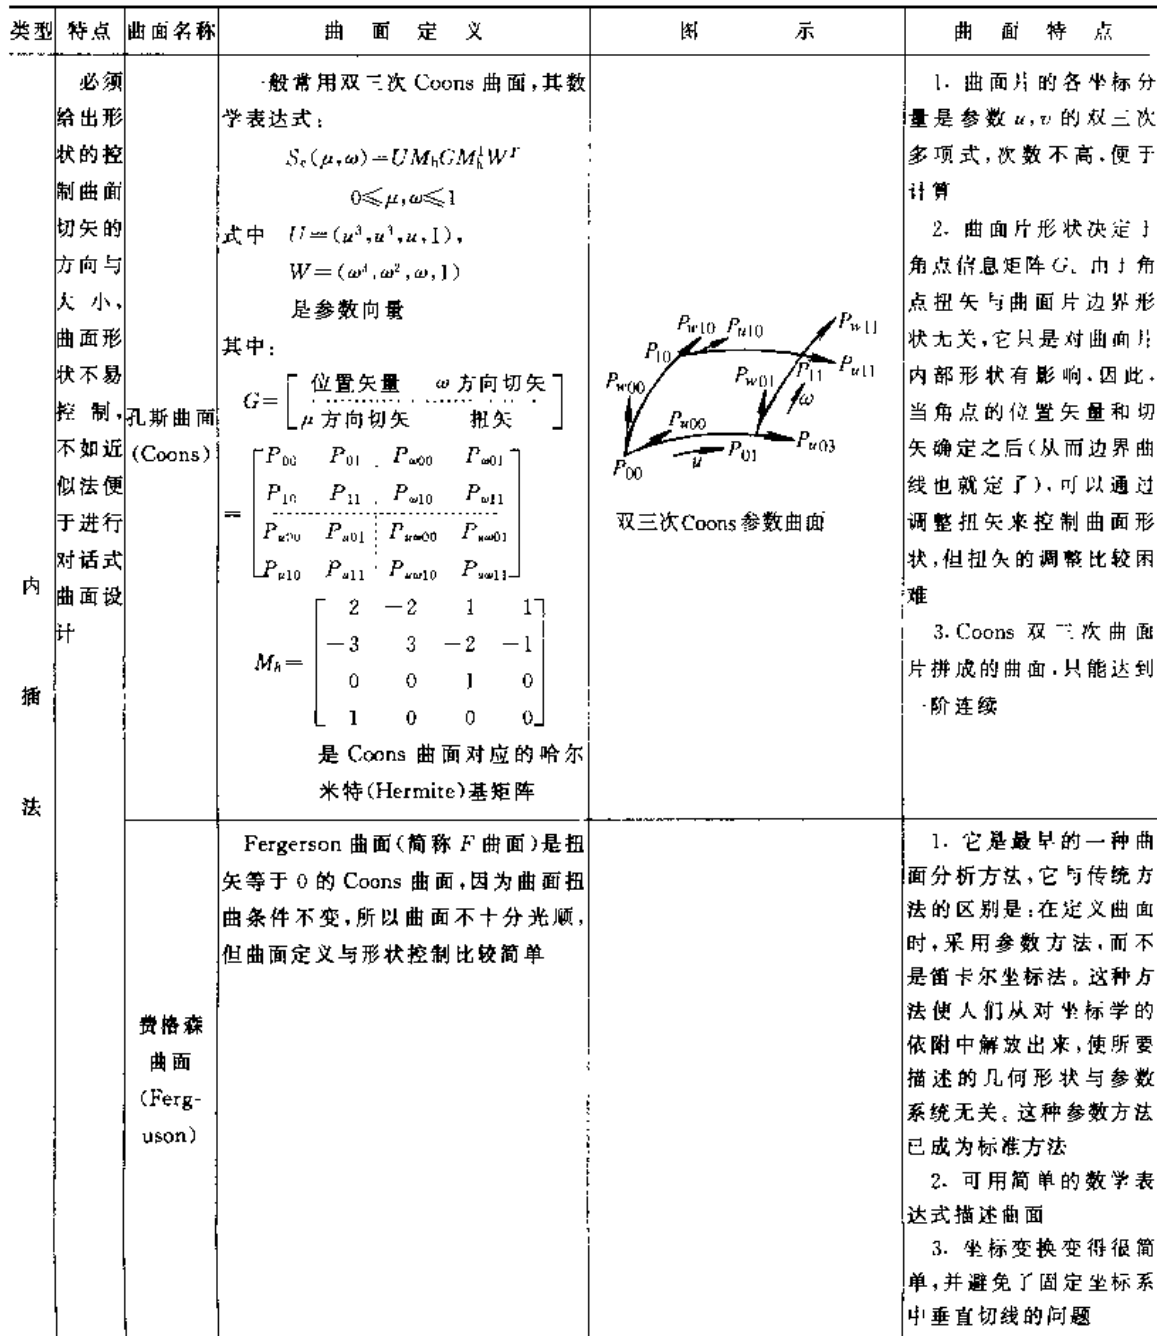 类型 特点 曲面名称 曲面定义 图示 曲面特点
内插法
必须
给出形
状的控
制曲面
切矢的
方向与
大小,
曲面形
状不易
控制,
不如近
似法便
于进行
对话式
曲面设
计
孔斯曲面
(Coons)
一般常用双三次 Coons 曲面,其数
学表达式:
S_c(μ,ω)=UM_hGM_h^TW^T
0≤μ,ω≤1
式中 U=(u³,u³,u,1),
W=(ω³,ω²,ω,1)
是参数向量
其中:
G=[位置矢量 ω方向切矢
μ方向切矢 扭矢]
=[P00 P01 Pω00 Pω01
P10 P11 Pω10 Pω11
Pu00 Pu01 Puω00 Puω01
Pu10 Pu11 Puω10 Puω11]
M_h=[2 −2 1 1
−3 3 −2 −1
0 0 1 0
1 0 0 0]
是 Coons 曲面对应的哈尔
米特(Hermite)基矩阵
Pw10 Pu10 Pw11
P10 Pu11
Pw00 Pw01 P11
ω
Pu00
P01 Pu03
P00 u
双三次Coons参数曲面
1. 曲面片的各坐标分
量是参数 u,v 的双三次
多项式,次数不高,便于
计算
2. 曲面片形状决定于
角点信息矩阵 G。由于角
点扭矢与曲面片边界形
状无关,它只是对曲面片
内部形状有影响,因此,
当角点的位置矢量和切
矢确定之后(从而边界曲
线也就定了),可以通过
调整扭矢来控制曲面形
状,但扭矢的调整比较困
难
3.Coons 双三次曲面
片拼成的曲面,只能达到
一阶连续
费格森
曲面
(Ferg-
uson)
Fergerson 曲面(简称 F 曲面)是扭
矢等于 0 的 Coons 曲面,因为曲面扭
曲条件不变,所以曲面不十分光顺,
但曲面定义与形状控制比较简单
1. 它是最早的一种曲
面分析方法,它与传统方
法的区别是:在定义曲面
时,采用参数方法,而不
是笛卡尔坐标法。这种方
法使人们从对坐标学的
依附中解放出来,使所要
描述的几何形状与参数
系统无关。这种参数方法
已成为标准方法
2. 可用简单的数学表
达式描述曲面
3. 坐标变换变得很简
单,并避免了固定坐标系
中垂直切线的问题